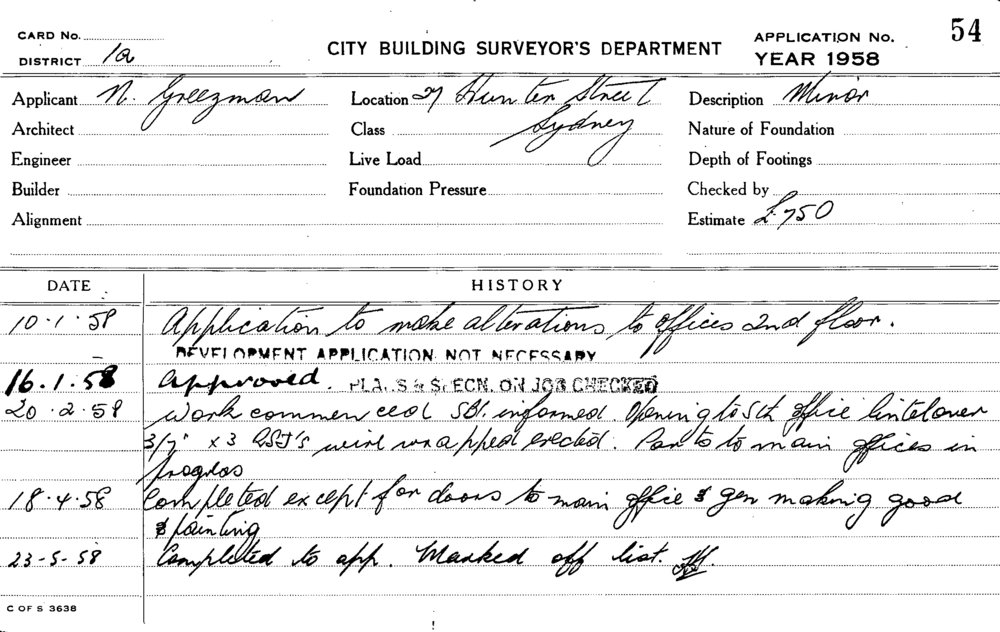 CARD No.
DISTRICT 1a
CITY BUILDING SURVEYOR'S DEPARTMENT
APPLICATION No. 54
YEAR 1958
Applicant N. Greezman
Location 27 Hunter Street
Sydney
Description Minor
Architect
Class
Nature of Foundation
Engineer
Live Load
Depth of Footings
Builder
Foundation Pressure
Checked by
Alignment
Estimate £750
DATE HISTORY
10.1.58 Application to make alterations to offices 2nd floor.
DEVELOPMENT APPLICATION NOT NECESSARY
16.1.58 Approved. PLANS & SPECN. ON JOB CHECKED
20.2.58 Work commenced informed. Opening to Sth office lintel over
3/7" x 3 RSJ's wire wrapped erected. Par to main offices in
progress
18.4.58 Completed except for doors to main office & gen making good
& painting
23-5-58 Completed to app. Marked off list.
C OF S 3638